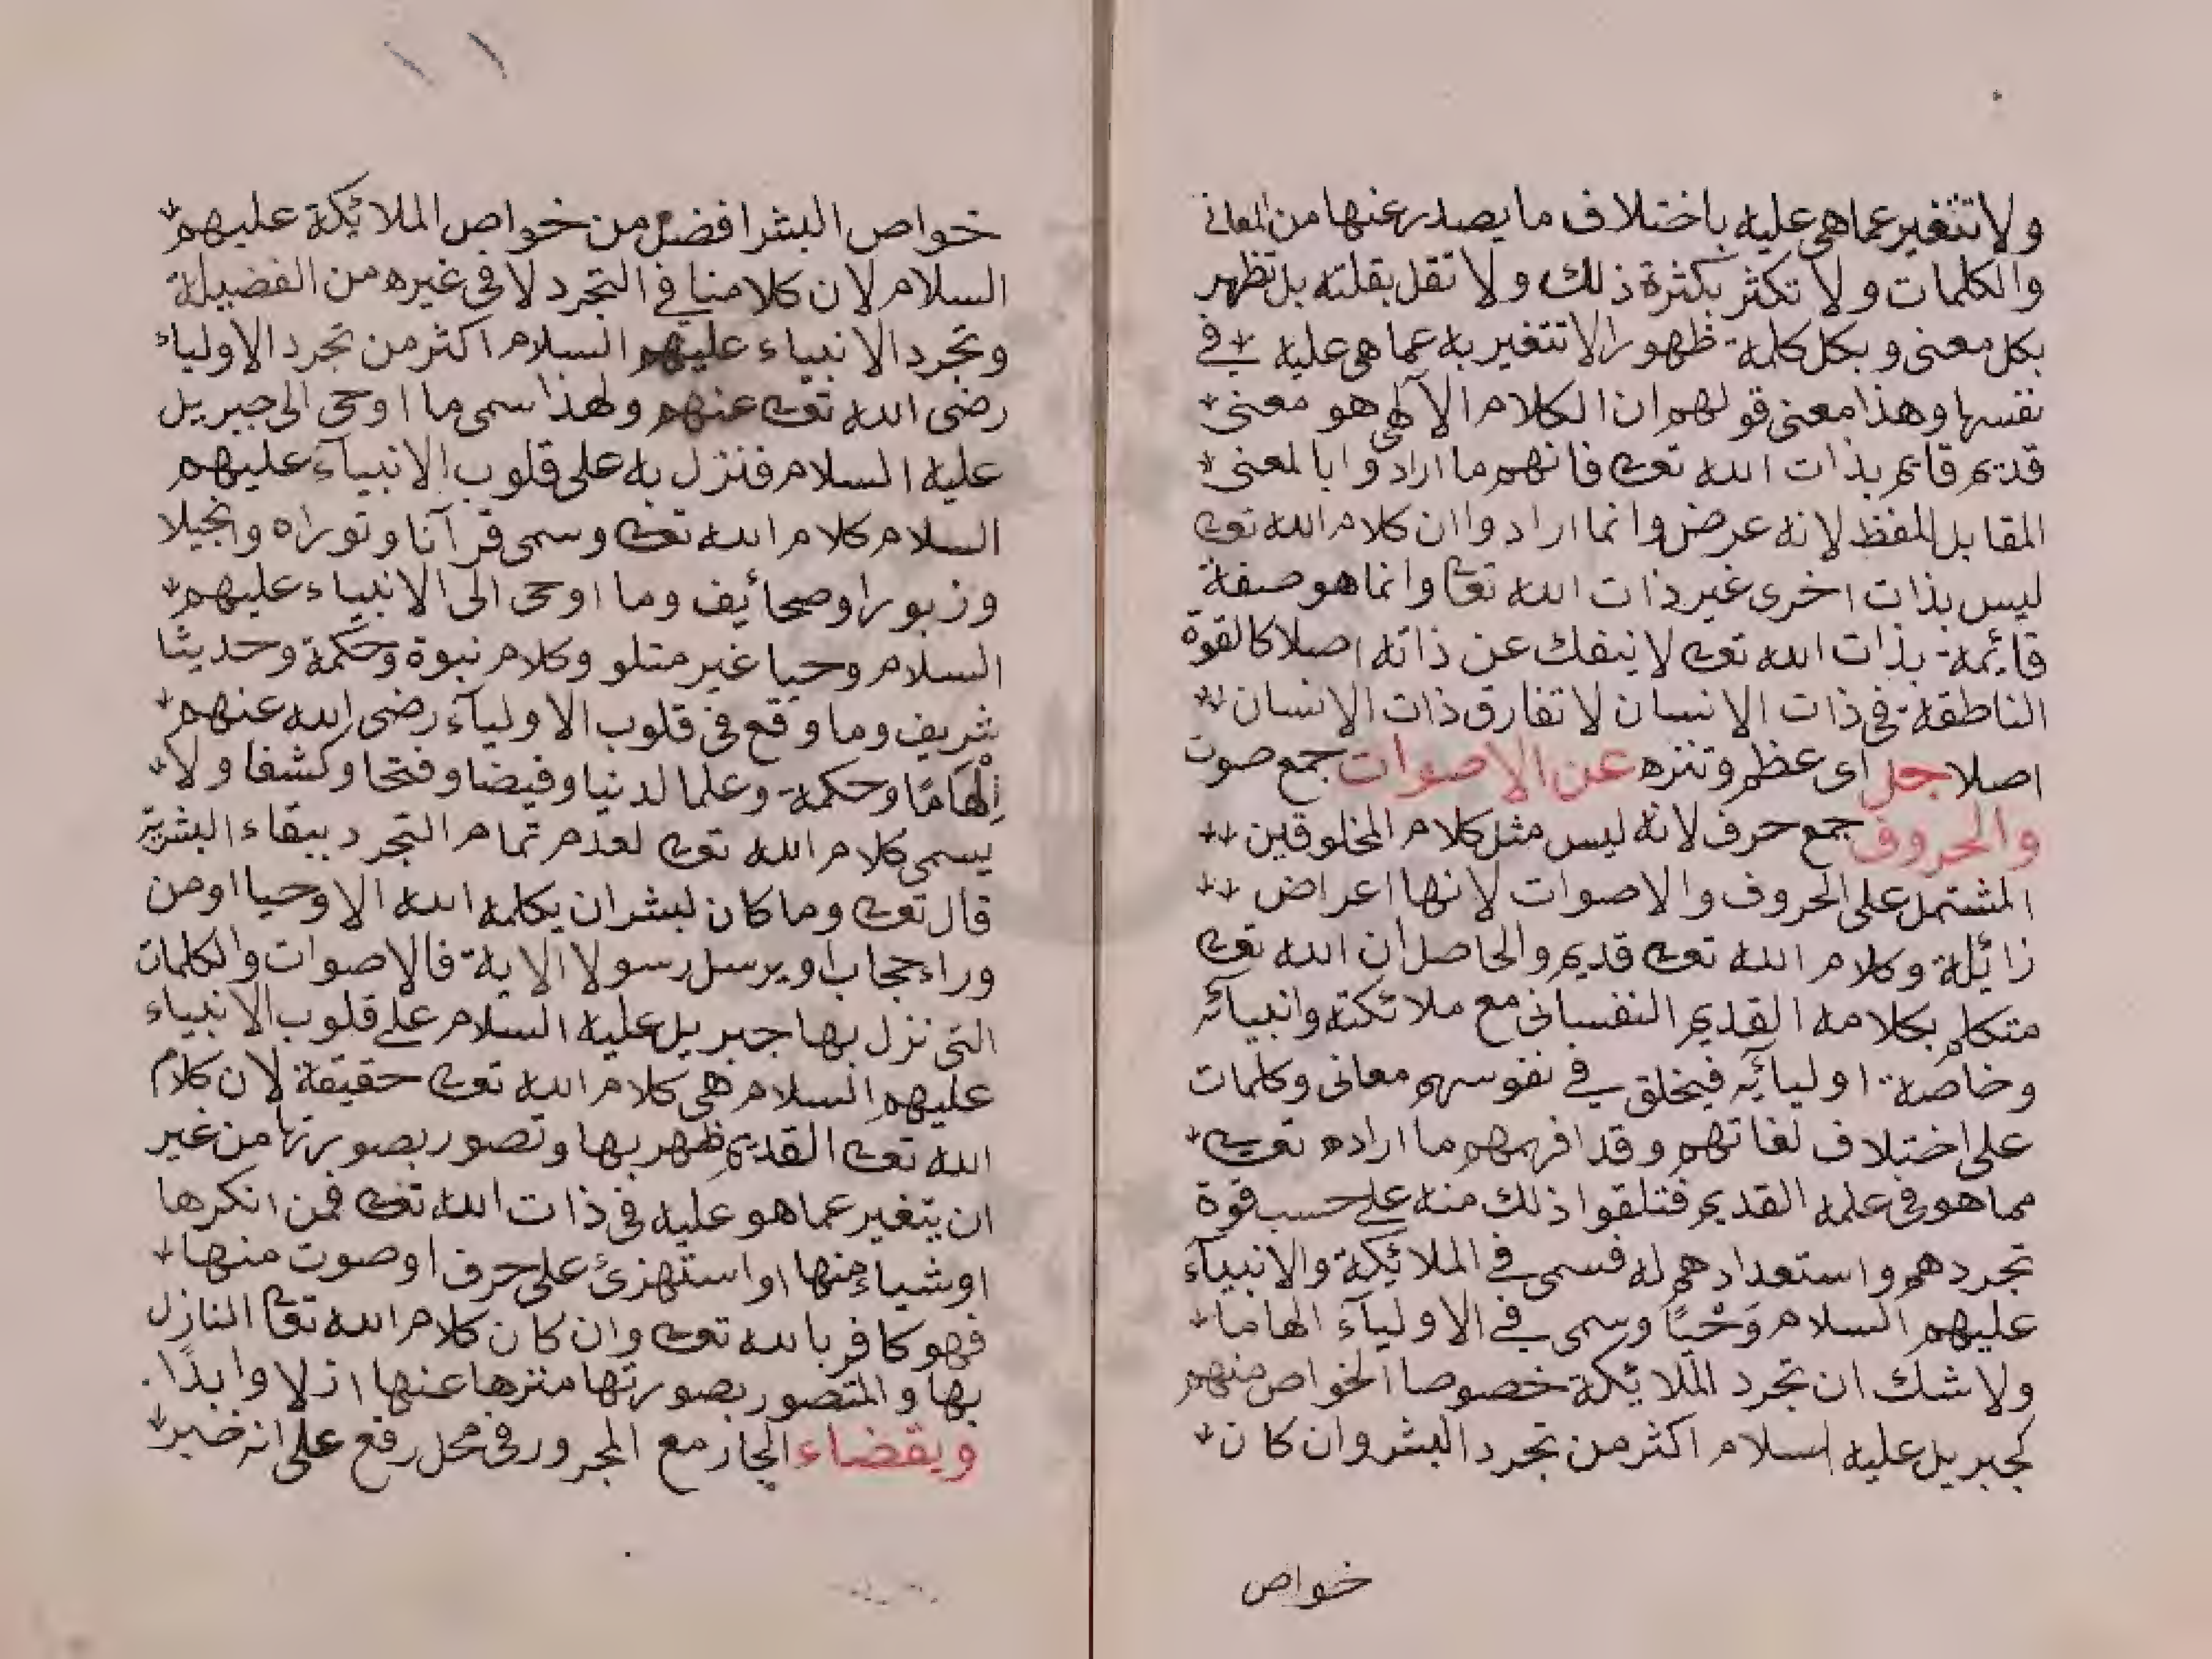 ولا تتغير عما هي عليه باختلاف ما يصدر عنها من المعاني
والكلمات ولا تكثر بكثرة ذلك ولا تقل بقلته بل تظهر
بكل معنى وبكل كلمة ظهورا لا تتغير به عما هي عليه في
نفسها وهذا معنى قولهم ان الكلام الآلهي هو معنى
قديم قايم بذات الله تعالى فانهم ما ارادوا بالمعنى
المقابل للفظ لانه عرض وانما ارادوا ان كلام الله تعالى
ليس بذات اخرى غير ذات الله تعالى وانما هو صفة
قائمة بذات الله تعالى لا ينفك عن ذاته اصلا كالقوة
الناطقة في ذات الانسان لا تفارق ذات الانسان
اصلا جل اي عظم وتنزه عن الاصوات جمع صوت
والحروف جمع حرف لانه ليس مثل كلام المخلوقين
المشتمل على الحروف والاصوات لانها اعراض
زائلة وكلام الله تعالى قديم والحاصل ان الله تعالى
متكلم بكلامه القديم النفساني مع ملائكته وانبيائه
وخاصة اوليائه فيخلق في نفوسهم معاني وكلمات
على اختلاف لغاتهم وقد افهمهم ما اراده تعالى
مما هو في علمه القديم فتلقوا ذلك منه على حسب قوة
تجردهم واستعدادهم له فسمى في الملائكة والانبيآء
عليهم السلام وَحْيًا وسمى في الاوليآء الهاما
ولا شك ان تجرد الملائكة خصوصا الخواص منهم
كجبريل عليه اسلام اكثر من تجرد البشر وان كان
خواص
١١
خواص البشر افضل من خواص الملائكة عليهم
السلام لان كلامنا في التجرد لا في غيره من الفضيلة
وتجرد الانبياء عليهم السلام اكثر من تجرد الاولياء
رضى الله تعالى عنهم ولهذا سمى ما اوحى الى جبريل
عليه السلام فنزل به على قلوب الانبيآء عليهم
السلام كلام الله تعالى وسمى قرآنا وتوراه وانجيلا
وزبورا وصحائف وما اوحى الى الانبياء عليهم
السلام وحيا غير متلو وكلام نبوة وحكمة وحديثا
شريف وما وقع في قلوب الاوليآء رضى الله عنهم
اِلْهَامًا وحكمة وعلما لدنيا وفيضا وفتحا وكشفا ولا
يسمى كلام الله تعالى لعدم تمام التجرد ببقاء البشرية
قال تعالى وما كان لبشر ان يكلمه الله الا وحيا او من
وراء حجاب او يرسل رسولا الاية فالاصوات والكلمات
التى نزل بها جبريل عليه السلام على قلوب الانبياء
عليهم السلام هي كلام الله تعالى حقيقة لان كلام
الله تعالى القديم ظهر بها وتصور بصورتها من غير
ان يتغير عما هو عليه في ذات الله تعالى فمن انكرها
او شياء منها او استهزئ على حرف او صوت منها
فهو كافر بالله تعالى وان كان كلام الله تعالى النازل
بها والمتصور بصورتها منزها عنها ازلا وابدًا
وبقضاء الجار مع المجرور في محل رفع على انه خبر